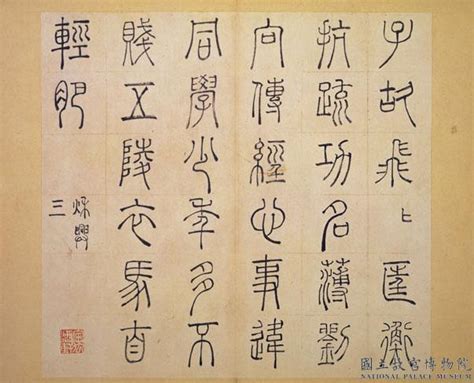 子故飛〻匡衡
抗疏功名薄劉
向傳經心事違
同學少年多不
賤五陵衣馬自
輕肥
秋興
三
國立故宮博物院
NATIONAL PALACE MUSEUM